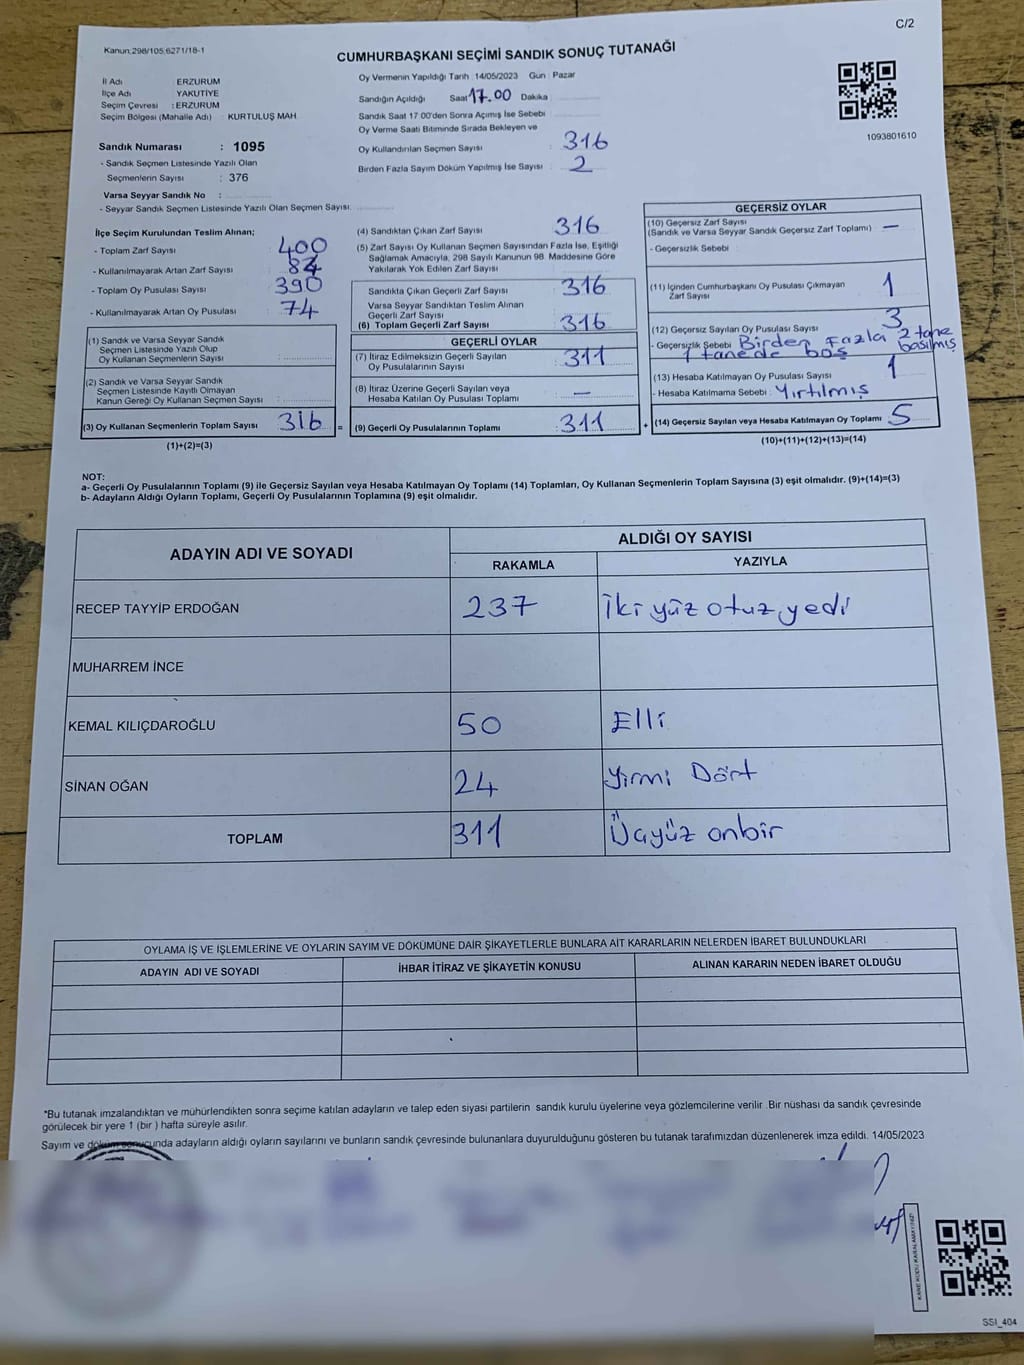 C/2
Kanun:298/105.6271/18-1
CUMHURBAŞKANI SEÇİMİ SANDIK SONUÇ TUTANAĞI
İl Adı : ERZURUM
İlçe Adı YAKUTİYE
Seçim Çevresi : ERZURUM
Seçim Bölgesi (Mahalle Adı) : KURTULUŞ MAH
Sandık Numarası : 1095
- Sandık Seçmen Listesinde Yazılı Olan
Seçmenlerin Sayısı : 376
Varsa Seyyar Sandık No :
- Seyyar Sandık Seçmen Listesinde Yazılı Olan Seçmen Sayısı:
Oy Vermenin Yapıldığı Tarih : 14/05/2023 Gün : Pazar
Sandığın Açıldığı Saat 17.00 Dakika
Sandık Saat 17 00'den Sonra Açımış İse Sebebi
Oy Verme Saati Bitiminde Sırada Bekleyen ve
Oy Kullandırılan Seçmen Sayısı : 316
Birden Fazla Sayım Döküm Yapılmış İse Sayısı : 2
1093801610
İlçe Seçim Kurulundan Teslim Alınan;
- Toplam Zarf Sayısı : 400
- Kullanılmayarak Artan Zarf Sayısı : 84
- Toplam Oy Pusulası Sayısı : 390
- Kullanılmayarak Artan Oy Pusulası : 74
(1) Sandık ve Varsa Seyyar Sandık
Seçmen Listesinde Yazılı Olup
Oy Kullanan Seçmenlerin Sayısı :
(2) Sandık ve Varsa Seyyar Sandık
Seçmen Listesinde Kayıtlı Olmayan
Kanun Gereği Oy Kullanan Seçmen Sayısı :
(3) Oy Kullanan Seçmenlerin Toplam Sayısı : 316 =
(1)+(2)=(3)
(4) Sandıktan Çıkan Zarf Sayısı : 316
(5) Zarf Sayısı Oy Kullanan Seçmen Sayısından Fazla İse, Eşitliği
Sağlamak Amacıyla, 298 Sayılı Kanunun 98. Maddesine Göre
Yakılarak Yok Edilen Zarf Sayısı :
Sandıkta Çıkan Geçerli Zarf Sayısı : 316
Varsa Seyyar Sandıktan Teslim Alınan
Geçerli Zarf Sayısı :
(6) Toplam Geçerli Zarf Sayısı : 316
GEÇERLİ OYLAR
(7) İtiraz Edilmeksizin Geçerli Sayılan
Oy Pusulalarının Sayısı : 311
(8) İtiraz Üzerine Geçerli Sayılan veya
Hesaba Katılan Oy Pusulası Toplamı : —
(9) Geçerli Oy Pusulalarının Toplamı : 311 +
GEÇERSİZ OYLAR
(10) Geçersiz Zarf Sayısı
(Sandık ve Varsa Seyyar Sandık Geçersiz Zarf Toplamı) : —
- Geçersizlik Sebebi :
(11) İçinden Cumhurbaşkanı Oy Pusulası Çıkmayan
Zarf Sayısı : 1
(12) Geçersiz Sayılan Oy Pusulası Sayısı : 3
- Geçersizlik Sebebi : Birden Fazla 2 tane basılmış
1 tanede boş
(13) Hesaba Katılmayan Oy Pusulası Sayısı : 1
- Hesaba Katılmama Sebebi : Yırtılmış
(14) Geçersiz Sayılan veya Hesaba Katılmayan Oy Toplamı : 5
(10)+(11)+(12)+(13)=(14)
NOT:
a- Geçerli Oy Pusulalarının Toplamı (9) ile Geçersiz Sayılan veya Hesaba Katılmayan Oy Toplamı (14) Toplamları, Oy Kullanan Seçmenlerin Toplam Sayısına (3) eşit olmalıdır. (9)+(14)=(3)
b- Adayların Aldığı Oyların Toplamı, Geçerli Oy Pusulalarının Toplamına (9) eşit olmalıdır.
ADAYIN ADI VE SOYADI
ALDIĞI OY SAYISI
RAKAMLA YAZIYLA
RECEP TAYYİP ERDOĞAN 237 İki yüz otuz yedi
MUHARREM İNCE
KEMAL KILIÇDAROĞLU 50 Elli
SİNAN OĞAN 24 Yirmi Dört
TOPLAM 311 Üçyüz onbir
OYLAMA İŞ VE İŞLEMLERİNE VE OYLARIN SAYIM VE DÖKÜMÜNE DAİR ŞİKAYETLERLE BUNLARA AİT KARARLARIN NELERDEN İBARET BULUNDUKLARI
ADAYIN ADI VE SOYADI İHBAR İTİRAZ VE ŞİKAYETİN KONUSU ALINAN KARARIN NEDEN İBARET OLDUĞU
*Bu tutanak imzalandıktan ve mühürlendikten sonra seçime katılan adayların ve talep eden siyasi partilerin sandık kurulu üyelerine veya gözlemcilerine verilir .Bir nüshası da sandık çevresinde
görülecek bir yere 1 (bir ) hafta süreyle asılır.
Sayım ve döküm sonucunda adayların aldığı oyların sayılarını ve bunların sandık çevresinde bulunanlara duyurulduğunu gösteren bu tutanak tarafımızdan düzenlenerek imza edildi. 14/05/2023
KARE KODU KARALAMAYINIZ!
SSI_404